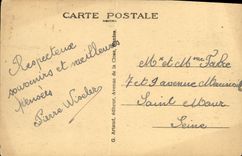 CARTE POSTALE
Respectueux
souvenirs et meilleures
pensées
Pierre
G. Artaud, éditeur, Avenue de la Close, Nantes
Mr et Mme Fabre
7 et 9 avenue
Saint Maur
Seine